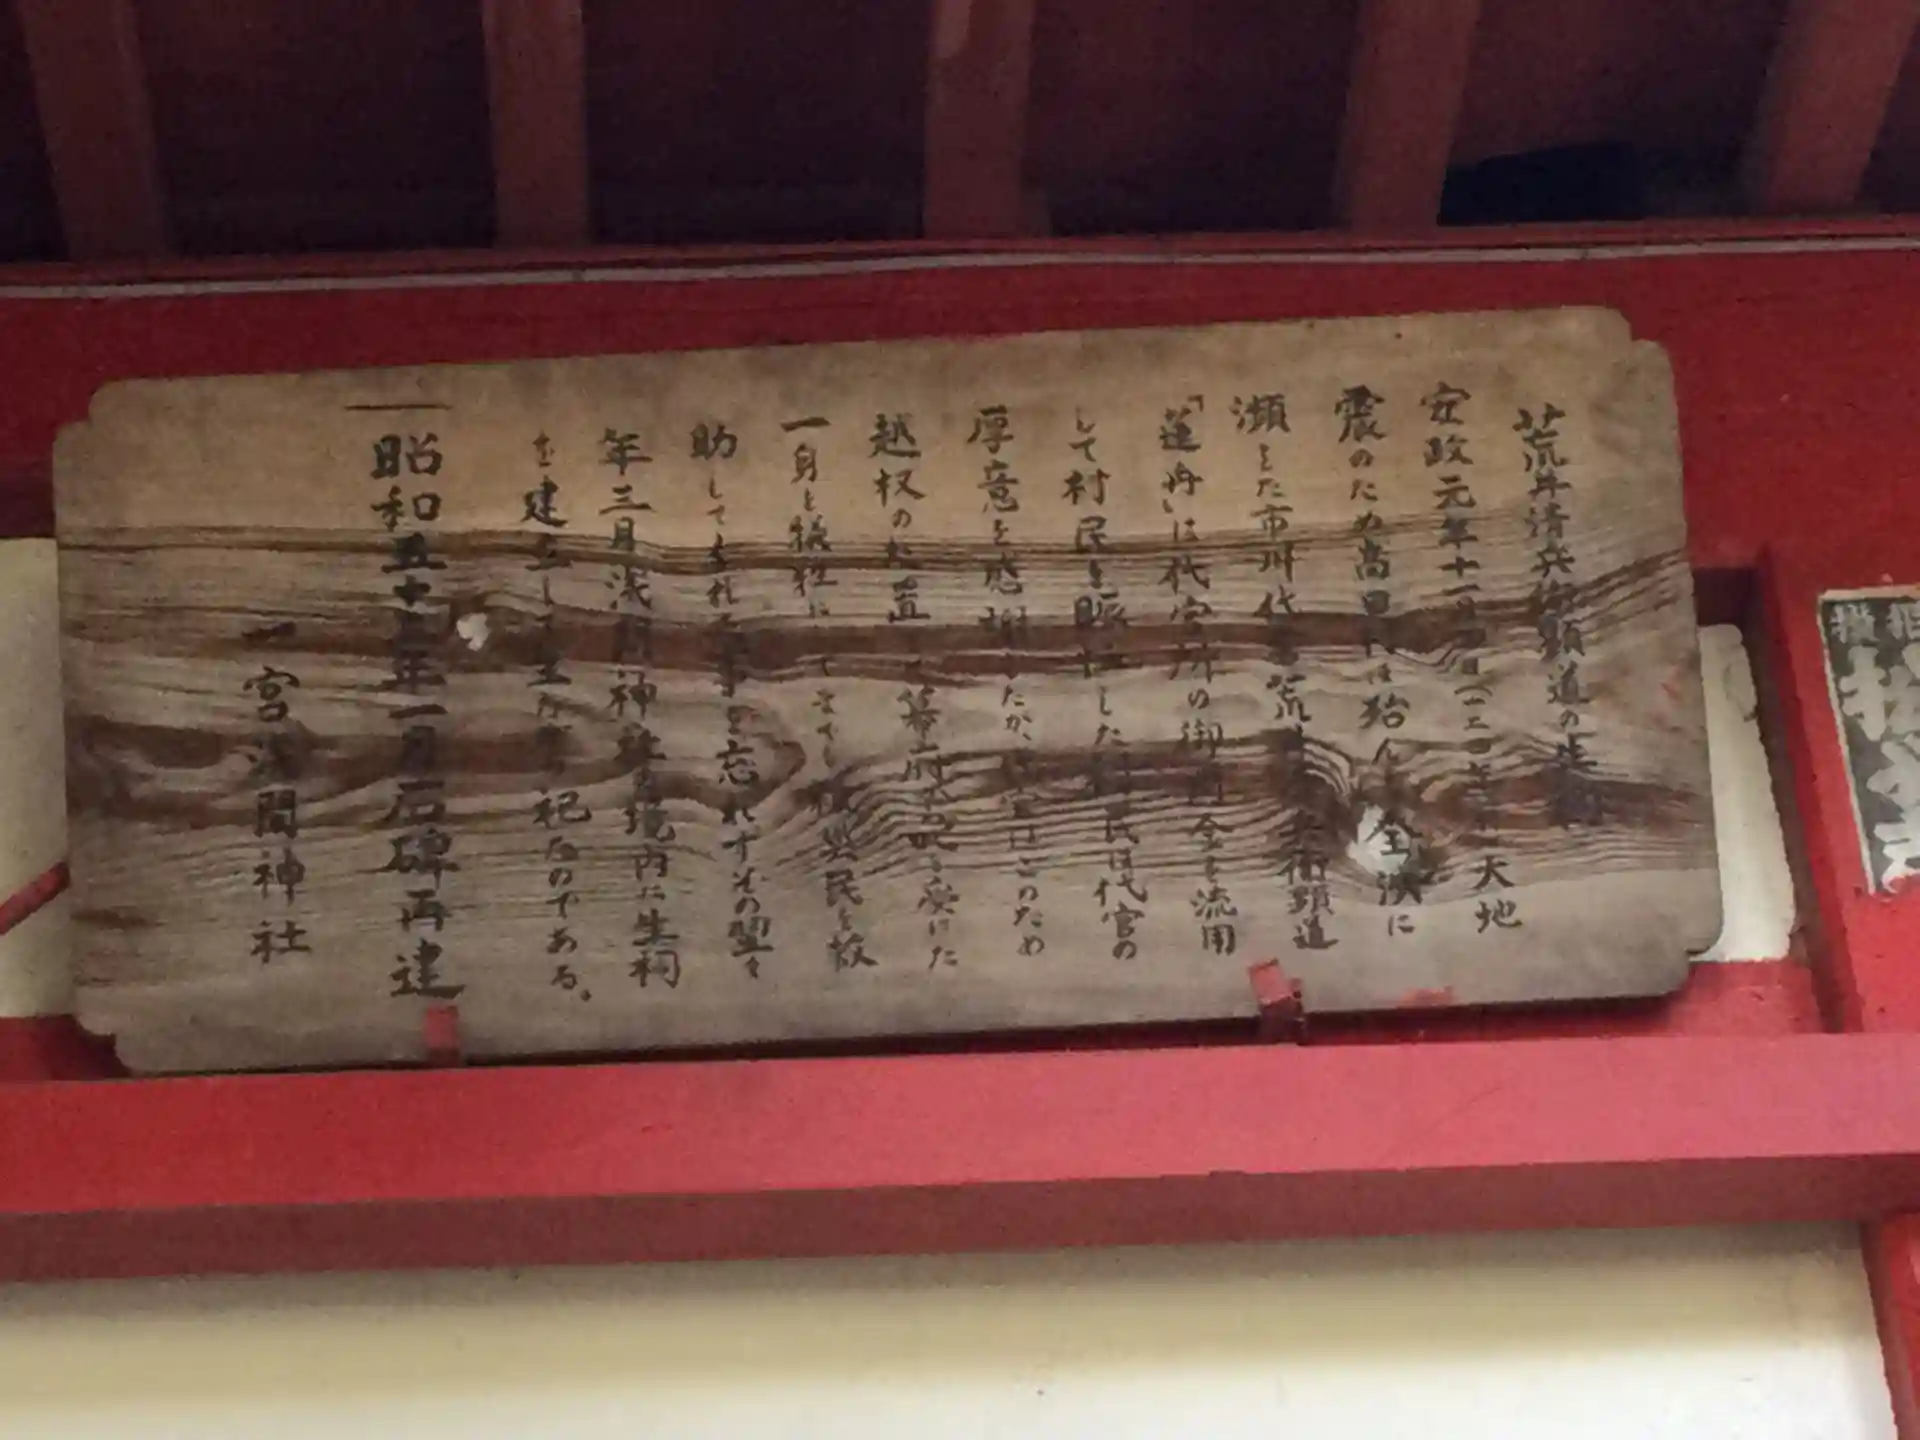 荒井清兵衛顕道の生祠
安政元年十一月四日(一二四年前)天地
震のため高田代は殆んど全潰に
瀕した市川代官荒井清兵衛顕道
「蓮舟」は代官所の御用金を流用
して村民を賑恤した村民は代官の
厚意を感謝したが、代官はこのため
越权のため直 幕府 を受けた
一身を犠牲にしてまでも 民を救
助してくれた事を忘れずその翌々
年三月浅間神社の境内に生祠
を建立して生 祀ったのである。
昭和五十 年一月石碑再建
一宮浅間神社